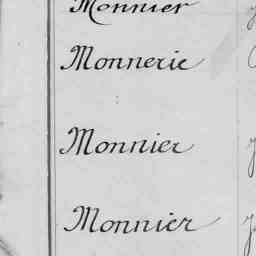 Monnier
Monnerie
Monnier
Monnier